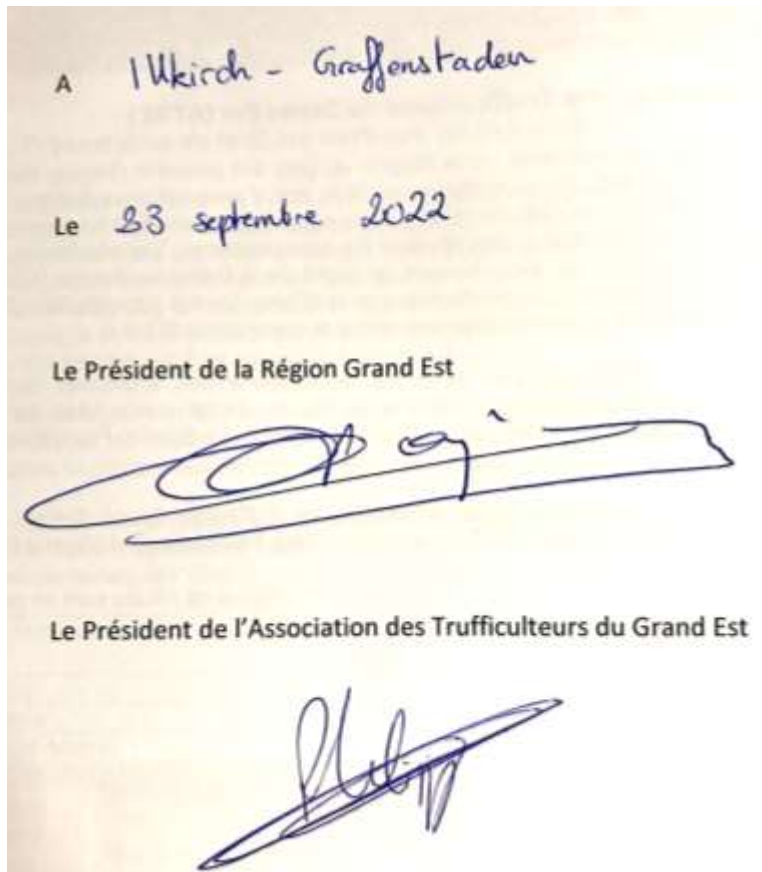 A Illkirch - Graffenstaden
Le 23 septembre 2022
Le Président de la Région Grand Est
Le Président de l'Association des Trufficulteurs du Grand Est